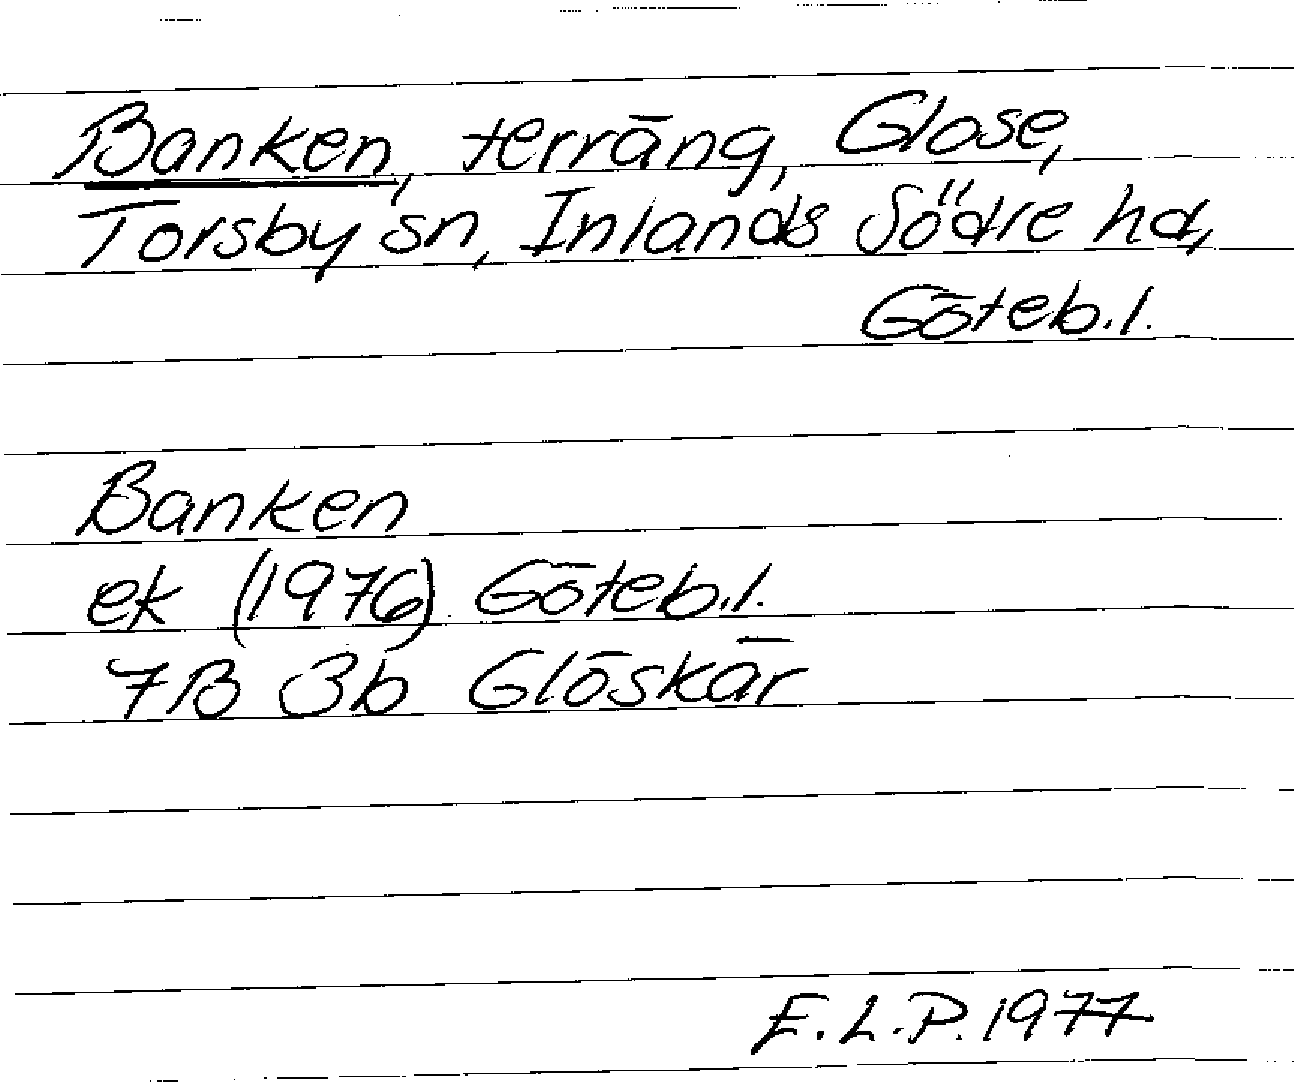 Banken, terräng, Glose,
Torsby sn, Inlands Södre hd,
Göteb.l.
Banken
ek (1976) Göteb.l.
7B 3b Glöskär
E.L.P. 1977